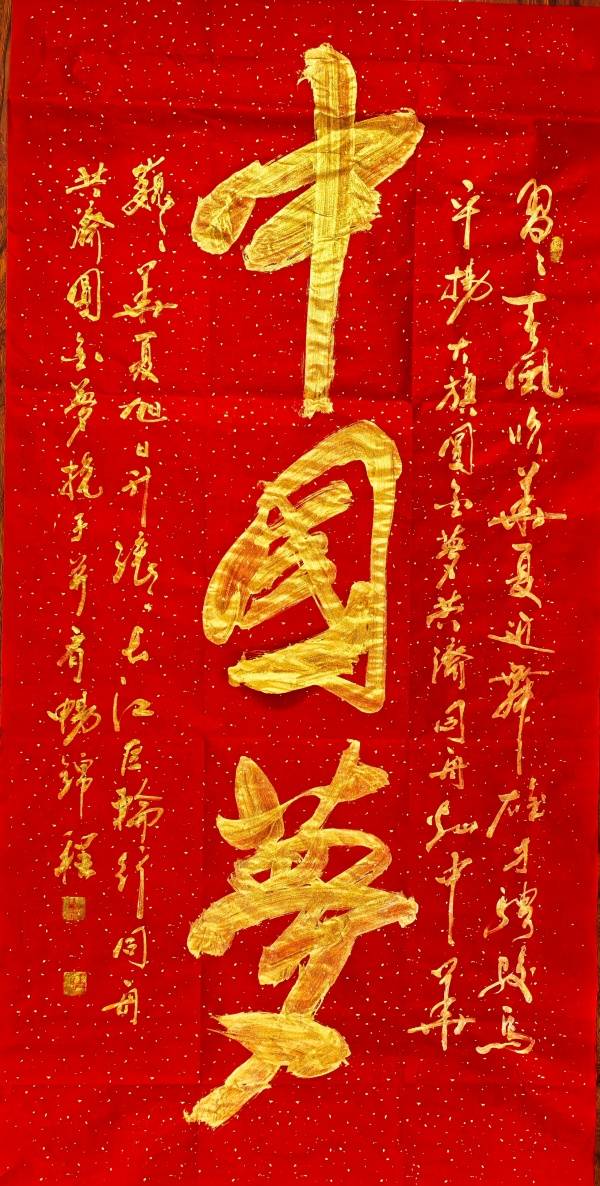 習〻春風吹華夏近舞雄才騁駿馬
平揚大旗圓金夢共濟同舟灿中華
中國夢
巍〻華夏旭日升滾〻长江巨輪行同舟
共濟圓金夢挽手并肩暢錦程